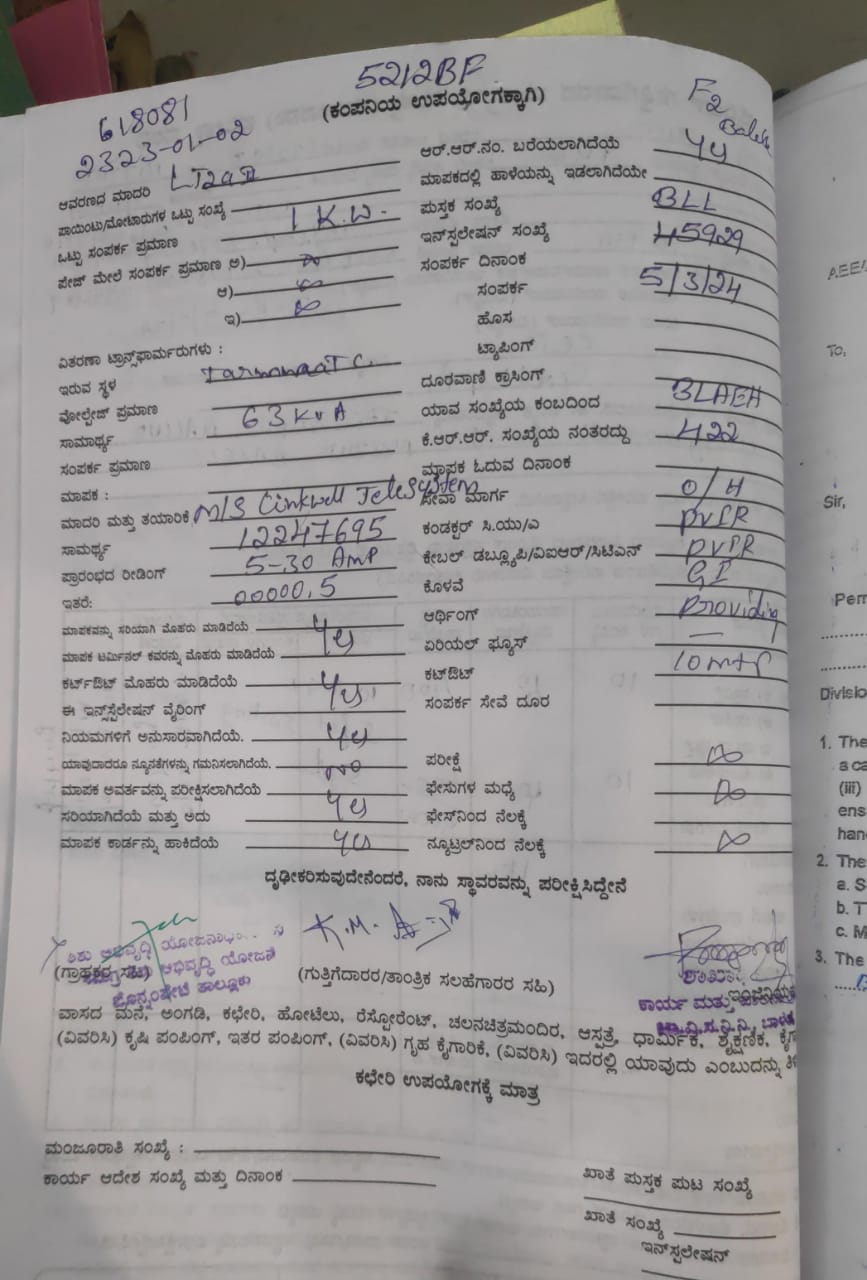 5212BF
(ಕಂಪನಿಯ ಉಪಯೋಗಕ್ಕಾಗಿ)
618081
2323-01-02
F2
ಆವರಣದ ಮಾದರಿ LT2a
ಪಾಯಿಂಟು/ಮೋಟಾರುಗಳ ಒಟ್ಟು ಸಂಖ್ಯೆ
ಒಟ್ಟು ಸಂಪರ್ಕ ಪ್ರಮಾಣ 1 K.W.
ಪೇಜ್ ಮೇಲೆ ಸಂಪರ್ಕ ಪ್ರಮಾಣ ಅ)
ಆ)
ಇ)
ವಿತರಣಾ ಟ್ರಾನ್ಸ್‌ಫಾರ್ಮರುಗಳು :
ಇರುವ ಸ್ಥಳ
ವೋಲ್ಟೇಜ್ ಪ್ರಮಾಣ
ಸಾಮಾರ್ಥ್ಯ 63 KVA
ಸಂಪರ್ಕ ಪ್ರಮಾಣ
ಮಾಪಕ :
ಮಾದರಿ ಮತ್ತು ತಯಾರಿಕೆ M/S Linkwell Telesystem
ಸಾಮರ್ಥ್ಯ 12247695
ಪ್ರಾರಂಭದ ರೀಡಿಂಗ್ 5-30 Amp
ಇತರೆ: 00000.5
ಮಾಪಕವನ್ನು ಸರಿಯಾಗಿ ಮೊಹರು ಮಾಡಿದೆಯೆ
ಮಾಪಕ ಟರ್ಮಿನಲ್ ಕವರನ್ನು ಮೊಹರು ಮಾಡಿದೆಯೆ yes
ಕರ್ಟ್‌ಔಟ್ ಮೊಹರು ಮಾಡಿದೆಯೆ
ಈ ಇನ್ಸ್‌ಸ್ಟೆಲೇಷನ್ ವೈರಿಂಗ್ yes
ನಿಯಮಗಳಿಗೆ ಅನುಸಾರವಾಗಿದೆಯೆ. yes
ಯಾವುದಾದರೂ ನ್ಯೂನತೆಗಳನ್ನು ಗಮನಿಸಲಾಗಿದೆಯೆ. no
ಮಾಪಕ ಅವರ್ತವನ್ನು ಪರೀಕ್ಷಿಸಲಾಗಿದೆಯೆ
ಸರಿಯಾಗಿದೆಯೆ ಮತ್ತು ಅದು yes
ಮಾಪಕ ಕಾರ್ಡನ್ನು ಹಾಕಿದೆಯೆ yes
ಆರ್.ಆರ್.ನಂ. ಬರೆಯಲಾಗಿದೆಯೆ yes
ಮಾಪಕದಲ್ಲಿ ಹಾಳೆಯನ್ನು ಇಡಲಾಗಿದೆಯೇ
ಪುಸ್ತಕ ಸಂಖ್ಯೆ BLL
ಇನ್‌ಸ್ಪಲೇಷನ್ ಸಂಖ್ಯೆ 45929
ಸಂಪರ್ಕ ದಿನಾಂಕ
ಸಂಪರ್ಕ 5/3/24
ಹೊಸ
ಟ್ಯಾಪಿಂಗ್
ದೂರವಾಣಿ ಕ್ರಾಸಿಂಗ್
ಯಾವ ಸಂಖ್ಯೆಯ ಕಂಬದಿಂದ BLAEH
ಕೆ.ಆರ್.ಆರ್. ಸಂಖ್ಯೆಯ ನಂತರದ್ದು 422
ಮಾಪಕ ಓದುವ ದಿನಾಂಕ
ಸೇವಾ ಮಾರ್ಗ O/H
ಕಂಡಕ್ಟರ್ ಸಿ.ಯು/ಎ
ಕೇಬಲ್ ಡಬ್ಲ್ಯೂಪಿ/ವಿಐಆರ್/ಸಿಟಿಎಸ್
ಕೊಳವೆ GI
ಆರ್ಥಿಂಗ್ Providing
ಏರಿಯಲ್ ಫ್ಯೂಸ್ —
ಕಟ್‌ಔಟ್ 10 mtr
ಸಂಪರ್ಕ ಸೇವೆ ದೂರ
ಪರೀಕ್ಷೆ
ಫೇಸುಗಳ ಮಧ್ಯೆ
ಫೇಸ್‌ನಿಂದ ನೆಲಕ್ಕೆ
ನ್ಯೂಟ್ರಲ್‌ನಿಂದ ನೆಲಕ್ಕೆ
ದೃಢೀಕರಿಸುವುದೇನೆಂದರೆ, ನಾನು ಸ್ಥಾವರವನ್ನು ಪರೀಕ್ಷಿಸಿದ್ದೇನೆ
K.M.
ಶಿಶು ಅಭಿವೃದ್ಧಿ
ಅಭಿವೃದ್ಧಿ ಯೋಜನೆ
ಪೊನ್ನಂಪೇಟೆ ತಾಲ್ಲೂಕು
(ಗ್ರಾಹಕರ ಸಹಿ)
(ಗುತ್ತಿಗೆದಾರರ/ತಾಂತ್ರಿಕ ಸಲಹೆಗಾರರ ಸಹಿ)
ಕಾರ್ಯ ಮತ್ತು
ವಾಸದ ಮನೆ, ಅಂಗಡಿ, ಕಛೇರಿ, ಹೋಟೆಲು, ರೆಸ್ಟೋರೆಂಟ್, ಚಲನಚಿತ್ರಮಂದಿರ, ಆಸ್ಪತ್ರೆ, ಧಾರ್ಮಿಕ, ಶೈಕ್ಷಣಿಕ,
(ವಿವರಿಸಿ) ಕೃಷಿ ಪಂಪಿಂಗ್, ಇತರ ಪಂಪಿಂಗ್, (ವಿವರಿಸಿ) ಗೃಹ ಕೈಗಾರಿಕೆ, (ವಿವರಿಸಿ) ಇದರಲ್ಲಿ ಯಾವುದು ಎಂಬುದನ್ನು
ಕಛೇರಿ ಉಪಯೋಗಕ್ಕೆ ಮಾತ್ರ
ಮಂಜೂರಾತಿ ಸಂಖ್ಯೆ :
ಕಾರ್ಯ ಆದೇಶ ಸಂಖ್ಯೆ ಮತ್ತು ದಿನಾಂಕ
ಖಾತೆ ಪುಸ್ತಕ ಪುಟ ಸಂಖ್ಯೆ
ಖಾತೆ ಸಂಖ್ಯೆ
ಇನ್‌ಸ್ಪಲೇಷನ್
To,
Sir,
1. The
(iii)
2. The
a. S
b. T
c. M
3. The